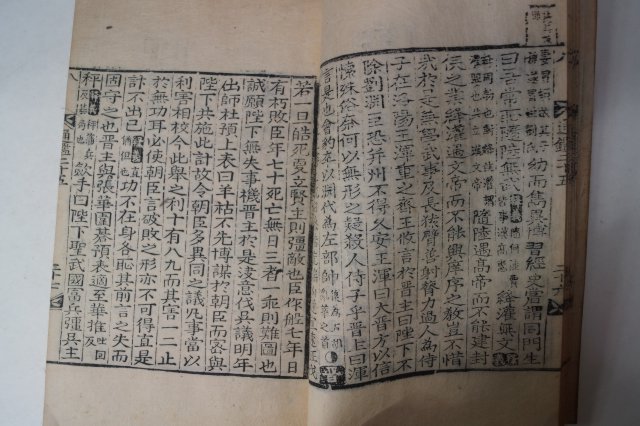 幼而雋異博習經史嘗謂同門生
曰吾常恥隨陸無武絳灌無文
隨陸遇高帝而不能建封
侯之業絳灌遇文帝而不能興庠序之教豈不惜
哉於是兼學武事及長猿臂善射膂力過人為侍
子在洛陽王渾重之齊王攸言於晉主曰陛下不
除劉淵臣恐幷州不得久安王渾曰大晉方以信
懷殊俗奈何以無形之疑殺人侍子乎晉主曰渾
言是也會豹卒以淵代為左部帥
若一旦皓死更立賢主則彊敵也臣作船七年日
有朽敗臣年七十死亡無日三者一乖則難圖也
誠願陛下無失事機晉主於是決意伐吳議明年
出師杜預上表曰羊祜不先博謀於朝臣而密與
陛下共施此計故令朝臣多異同之議凡事當以
利害相校今此舉之利十有八九而其害一二止
於無功耳必使朝臣言破敗之形亦不可得直是
計不出已功不在身各恥其前言之失而
固守之也晉主與張華圍棊預表適至華推
枰斂手曰陛下聖武國富兵彊吳主
通鑑二十五